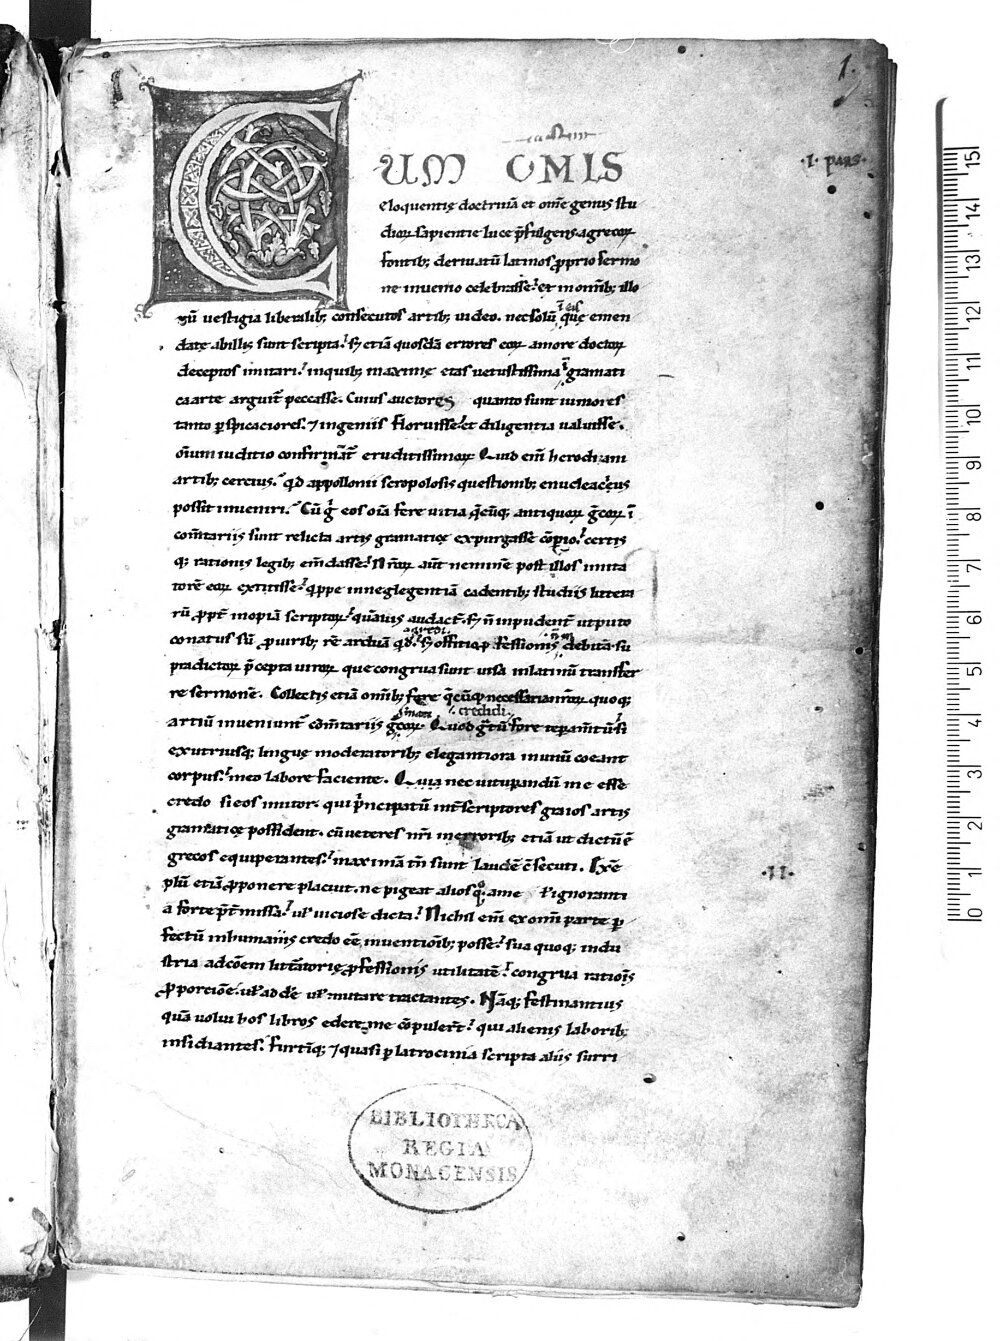 1.
·I· pars·
CUM OMIS
eloquentię doctrinā et om̄e genus stu
dioꝝ sapientie luce p̄fulgens a grecoꝝ
fontib; deriuatū latinos ꝓprio sermo
ne inuenio celebrasse. et in omīb; illo
uestigia liberalib; consecutos artib; uideo. nec solū quę emen
date ab illis sunt scripta. sꝫ etiā quosdā errores eoꝝ amore doctoꝝ
deceptos imitari. in quib; maxime etas uetustissima gramati
ca arte peccasse. Cuius auctores quanto sunt iuniores
tanto ꝑspicaciores. ⁊ ingeniis floruisse. et diligentia ualuisse.
oīum iuditio eruditissimoꝝ Quid em̄ herodiani
artib; cercius. qd̄ appollonii scropolosis questionib; enucleacius
possit inueniri. Cū eos oīa fere uitia antiquoꝝ
sunt relicta artis gramaticę expurgasse certis
q; rationis legib; aūt neminē post illos imita
torē eoꝝ extitisse. in neglegentiā cadentib; studiis littera
rū ꝓpt̄ inopiā scriptoꝝ. quāuis audact̄. sꝫ n̄ impudent̄ ut puto
conatus sū ꝓ uirib; rē arduā sꝫ offitio ꝓfessionis debitā. su
pradictoꝝ p̄cepta uiroꝝ que congrua sunt uisa in latinū transfer
re sermonē. Collectis etiā omīb; fere quoq;
artiū inueniunt̄ credidi Quod fore
ex utriusq; linguę moderatorib; elegantiora in unū coeant
corpus. meo labore faciente. Quia nec uitupandū me esse
credo si eos imitor. qui p̄ncipatū int̄ scriptores graios artis
gramaticę possident. cū ueteres nr̄i in errorib; etiā ut dictū ē
grecos equiperantes. maximā tn̄ sunt laudē c̄secuti.
plū etiā ꝓponere placuit. ne pigeat alios q°q; a me ł ignoranti
a forte p̄t̄missa. uł uiciose dicta. Nichil em̄ ex omī parte ꝑ
fectū in humanis credo eē inuentionib; posse. sua quoq; indu
stria ad cōem litt̄atorię ꝓfessionis utilitatē. congrua rationis
ꝓporcione. uł adde uł mutare tractantes. Nāq; festinantius
quā uolui hos libros edere me cōpuler̄t. qui alienis laborib;
insidiantes. furtīq; ⁊ quasi ꝑ latrocinia scripta aliis surri
·II·
BIBLIOTHECA
REGIA
MONACENSIS
15
14
13
12
11
10
9
8
7
6
5
4
3
2
1
0